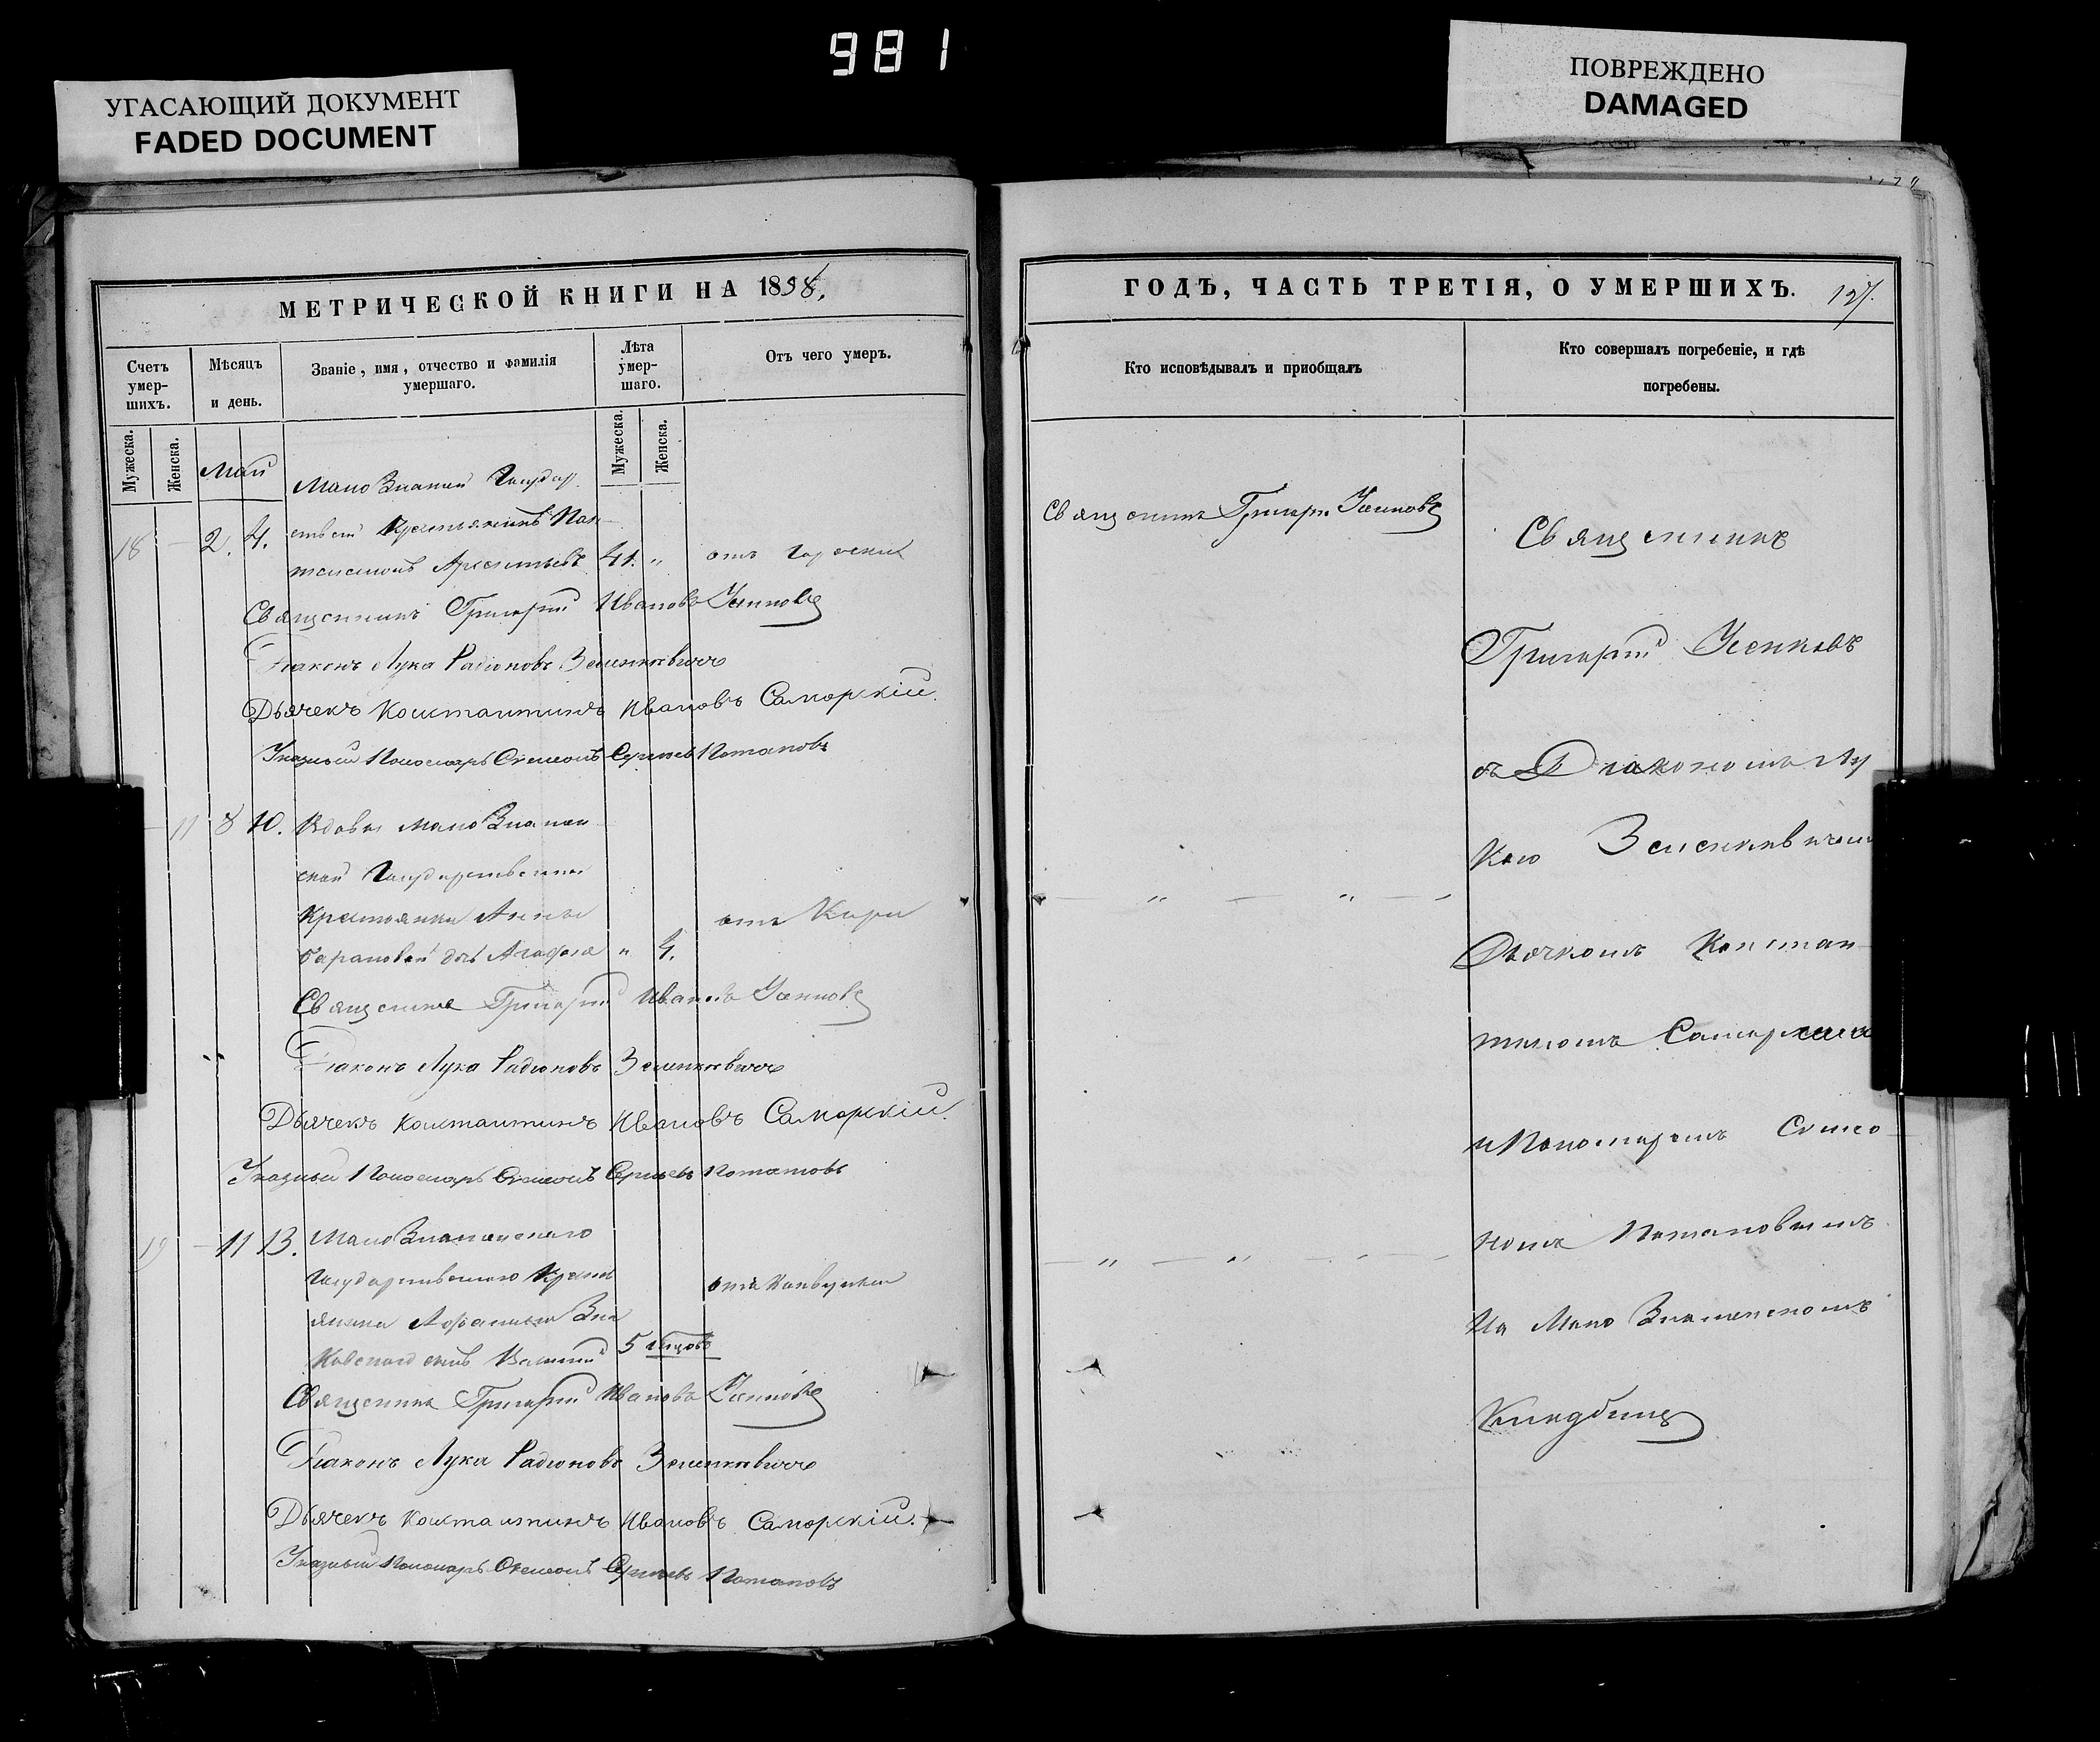 981
УГАСАЮЩИЙ ДОКУМЕНТ
FADED DOCUMENT
ПОВРЕЖДЕНО
DAMAGED
МЕТРИЧЕСКОЙ КНИГИ НА 1858.
Счетъ умер-
шихъ.
Мѣсяцъ
и день.
Званіе, имя, отчество и фамилія
умершаго.
Лѣта
умер-
шаго.
Отъ чего умеръ.
Мужеска.
Женска.
Мужеска.
Женска.
Май
Мало Знамен Государ
ствен Крестьянинъ Пан
18 - 2. 4.
телемонъ Арсентьевъ 41. " отъ Горячки
Священникъ Григорий Ивановъ Усенковъ
Діаконъ Лука Радіоновъ Зеленкевичъ
Дьячекъ Константинъ Ивановъ Саморскій.
Указный Пономарь Семеонъ Сергіевъ Потаповъ
- 11 8 10. Вдовы Мало Знамен
ской Государственной
Крестьянки Анны
Барановой дочь Агафія " 4. отъ Кори
Священникъ Григорий Ивановъ Усенковъ
Діаконъ Лука Радіоновъ Зеленкевичъ
Дьячекъ Константинъ Ивановъ Саморскій.
Указный Пономарь Семеонъ Сергіевъ Потаповъ
19 - 11 13. Мало Знаменскаго
Государственнаго Кресть
янина Афанасія Зна
сынъ Василий 5
Священникъ Григорий Ивановъ Усенковъ
Діаконъ Лука Радіоновъ Зеленкевичъ
Дьячекъ Константинъ Ивановъ Саморскій.
Указный Пономарь Семеонъ Сергіевъ Потаповъ
ГОДЪ, ЧАСТЬ ТРЕТІЯ, О УМЕРШИХЪ. 127.
Кто исповѣдывалъ и приобщалъ
Кто совершалъ погребеніе, и гдѣ
погребены.
Священникъ Григорий Усенковъ
Священникъ
Григорий Усенковъ
съ Діакономъ Лу
кою Зеленкевичемъ
Дьячкомъ Констан
тиномъ Саморскимъ
и Пономаремъ Симео
номъ Потаповымъ
На Мало Знаменскомъ
Кладбищѣ